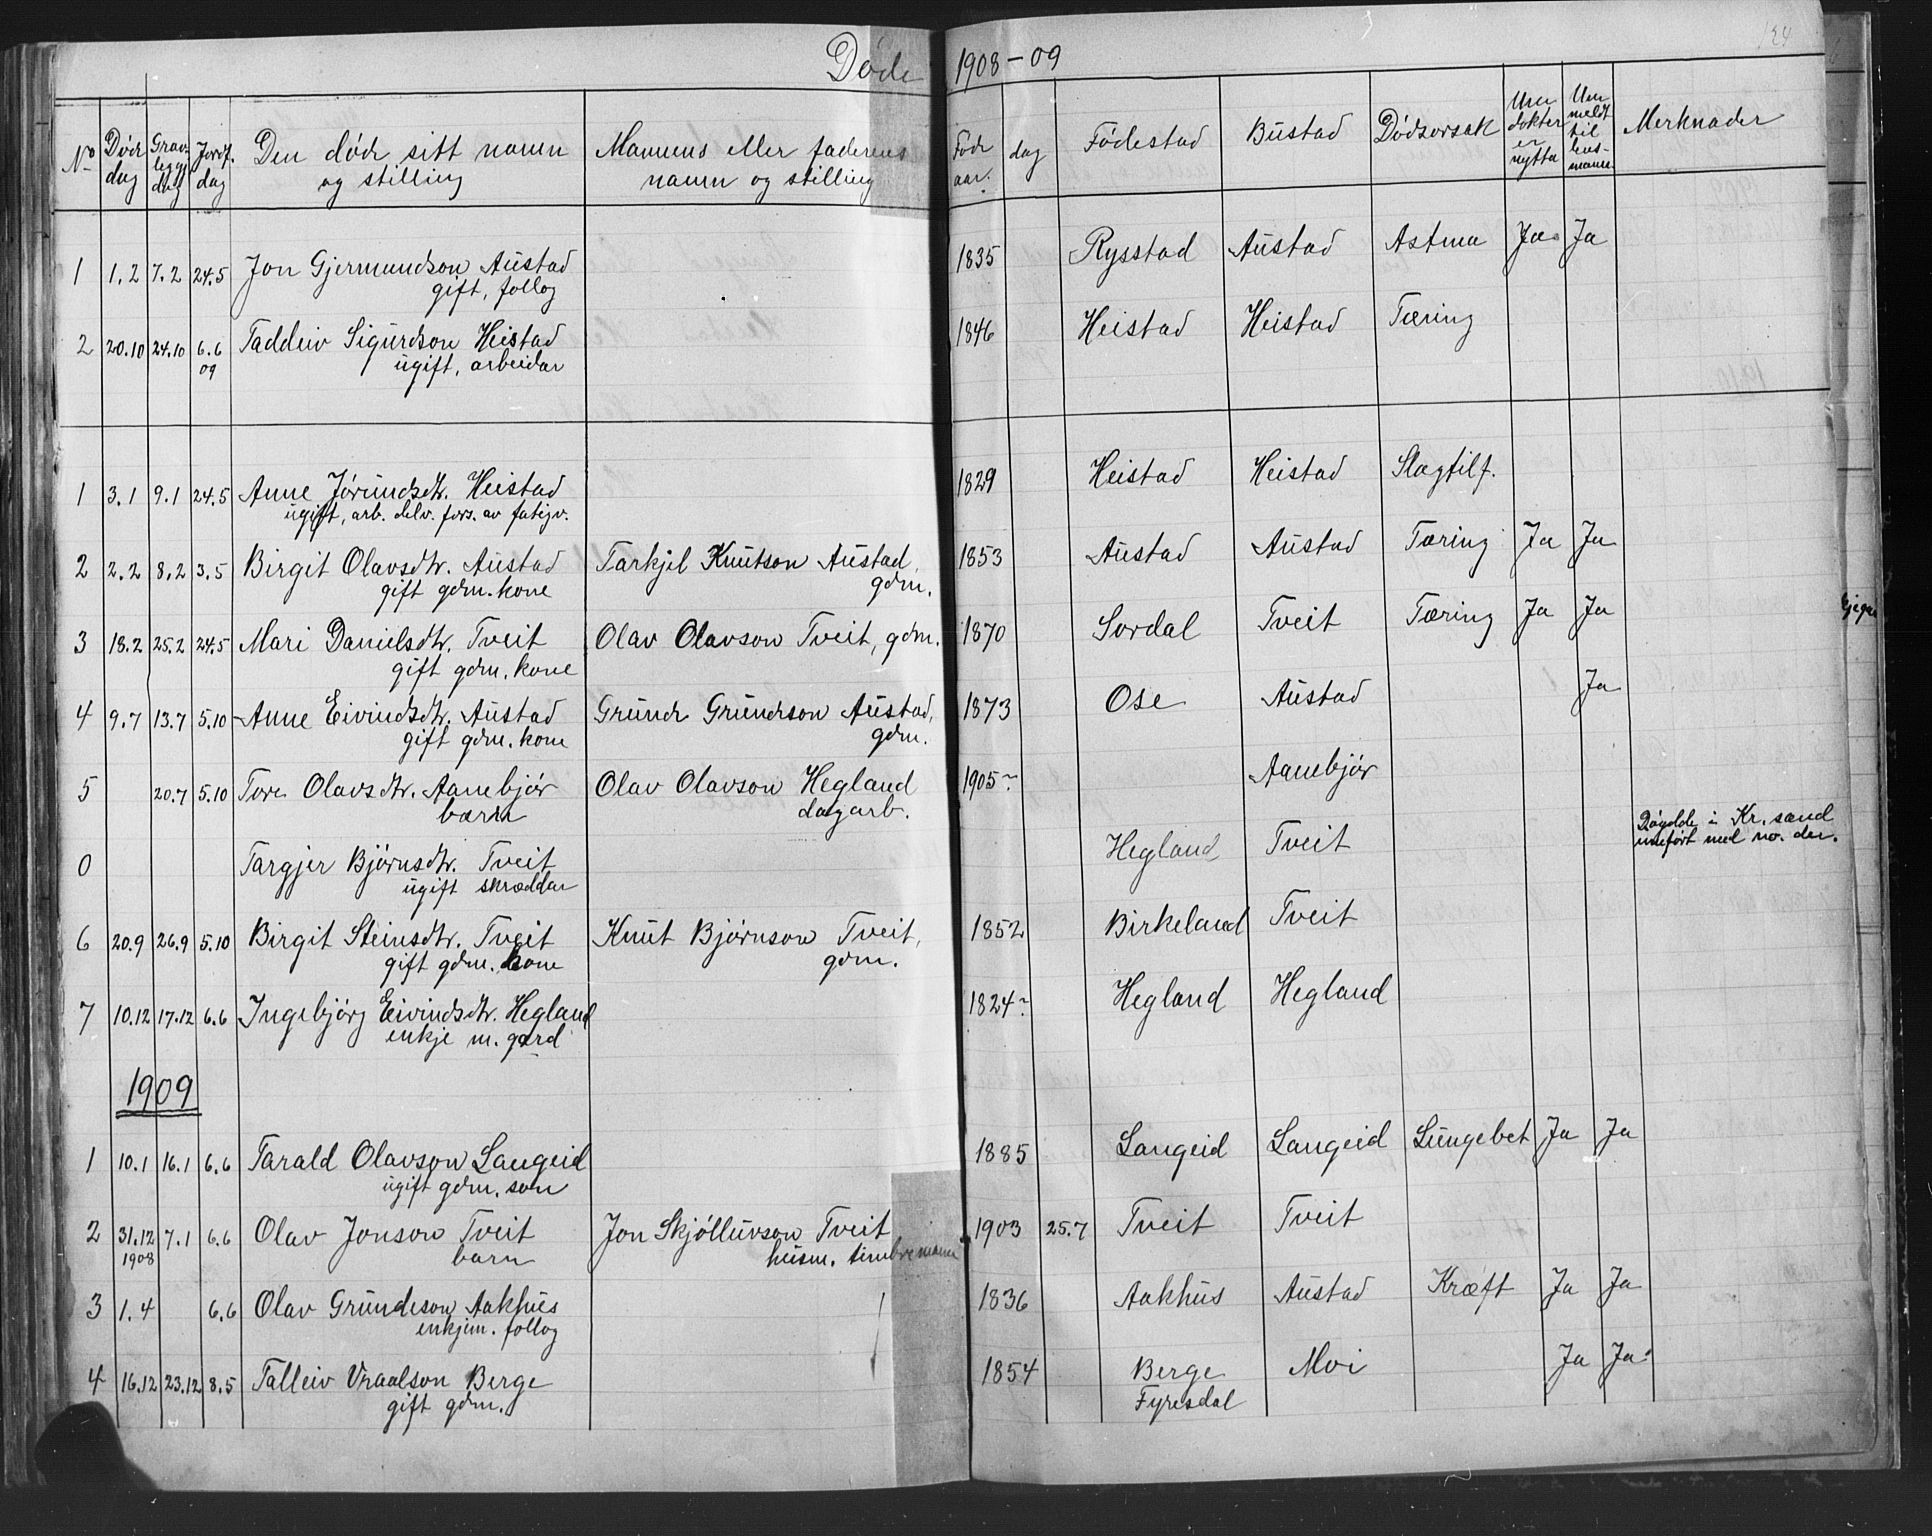 Døde 1908-09
124
No Døde dag Gravleggjdag Jordf. dag Den døde sitt namn og stilling Mannens eller faderens namn og stilling Føde aar. dag Fødestad Bustad Dødsorsak Um dokter er nytta Um meldt til lensmann. Merknader
1 1.2 7.2 24.5 Jon Gjermundson Austad 1835 Rysstad Austad Astma Ja Ja
gift, follog
2 20.10 24.10 6.6 Taddeiv Sigurdson Heistad 1846 Heistad Heistad Tæring
09 ugift, arbeidar
1 3.1 9.1 24.5 Anne Jørundsdtr. Heistad 1829 Heistad Heistad Slagtilf.
ugift, arb. delv. fors. av fatigv.
2 2.2 8.2 3.5 Birgit Olavsdtr. Austad Tarkjel Knutson Austad, 1853 Austad Austad Tæring Ja Ja
gift gdm. kone gdm.
3 18.2 25.2 24.5 Mari Danielsdtr. Tveit Olav Olavson Tveit, gdm. 1870 Sordal Tveit Tæring Ja Ja
gift gdm. kone
4 9.7 13.7 5.10 Anne Eivindsdtr. Austad Grunde Grundeson Austad, 1873 Ose Austad Ja
gift gdm. kone gdm.
5 20.7 5.10 Tore Olavsdtr. Aanebjør Olav Olavson Hegland 1905~ Aanebjør
barn dagarb.
0 Targjer Bjørnsdtr. Tveit Hegland Tveit Døydde i Kr.sand
ugift skræddar innført med no. der.
6 20.9 26.9 5.10 Birgit Steinsdtr. Tveit Knut Bjørnson Tveit, 1852 Birkeland Tveit
gift gdm. kone gdm.
7 10.12 17.12 6.6 Ingebjørg Eivindsdtr. Hegland 1824~ Hegland Hegland
enkje m. gard
1909
1 10.1 16.1 6.6 Tarald Olavson Langeid 1885 Langeid Langeid Lungebet Ja Ja
ugift gdm. son
2 31.12 7.1 6.6 Olav Jonson Tveit Jon Skjølluvson Tveit 1903 25.7 Tveit Tveit
1908 barn husm. timbremann
3 1.4 6.6 Olav Grundeson Aakhus 1836 Aakhus Austad Kræft Ja Ja
enkjem. follog
4 16.12 23.12 8.5 Talleiv Vraalson Berge 1854 Berge Moi Ja Ja
gift gdm. Fyresdal